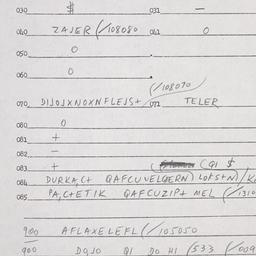 030 $ 031 —
040 ZAJER (/108080 041 0
050 0
060 0
(/108070
070 DIJOJXNOXNFLEJS+ 071 TELER
080 0
081 +
082 —
083 + (QI $
084 DURKA,C+ QAFCUVELQERN) LOFST+N)
085 PA,C+ETIK QAFCUZIP+ MEL (/1310
900 AFLAXELEFL (/105050
900 DQJO QI DO HI (533 (/009